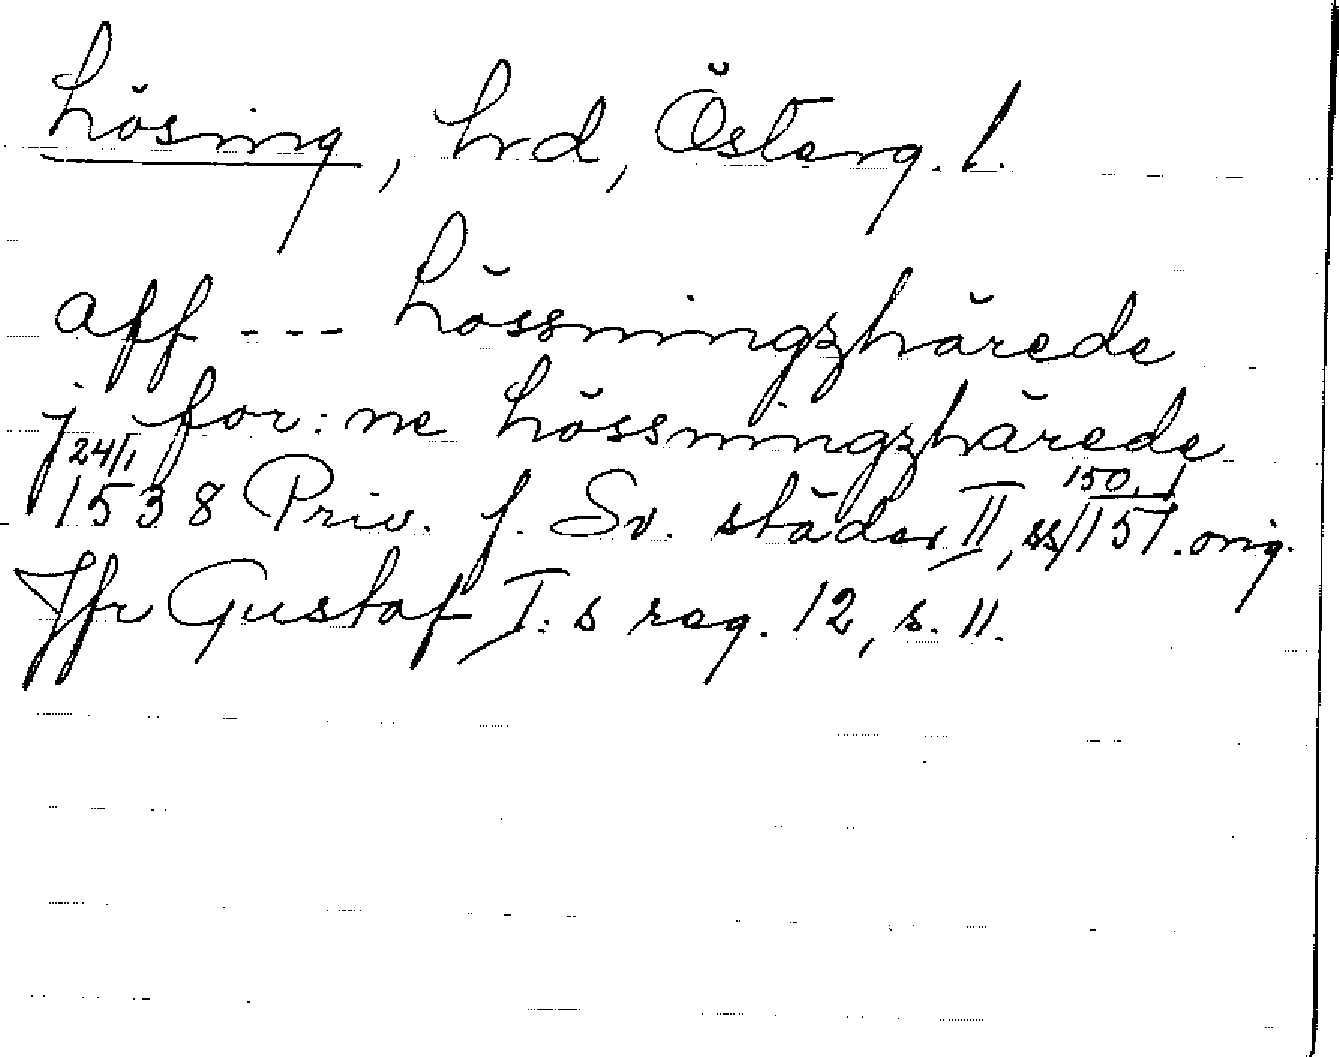 Lösing, hrd, Österg. l.
aff --- Lössningzhärede
j for:ne Lössningzhärede
24/1 1538 Priv. f. Sv. städer II, ss 150, 151. orig.
Jfr Gustaf I:s reg. 12, s. 11.